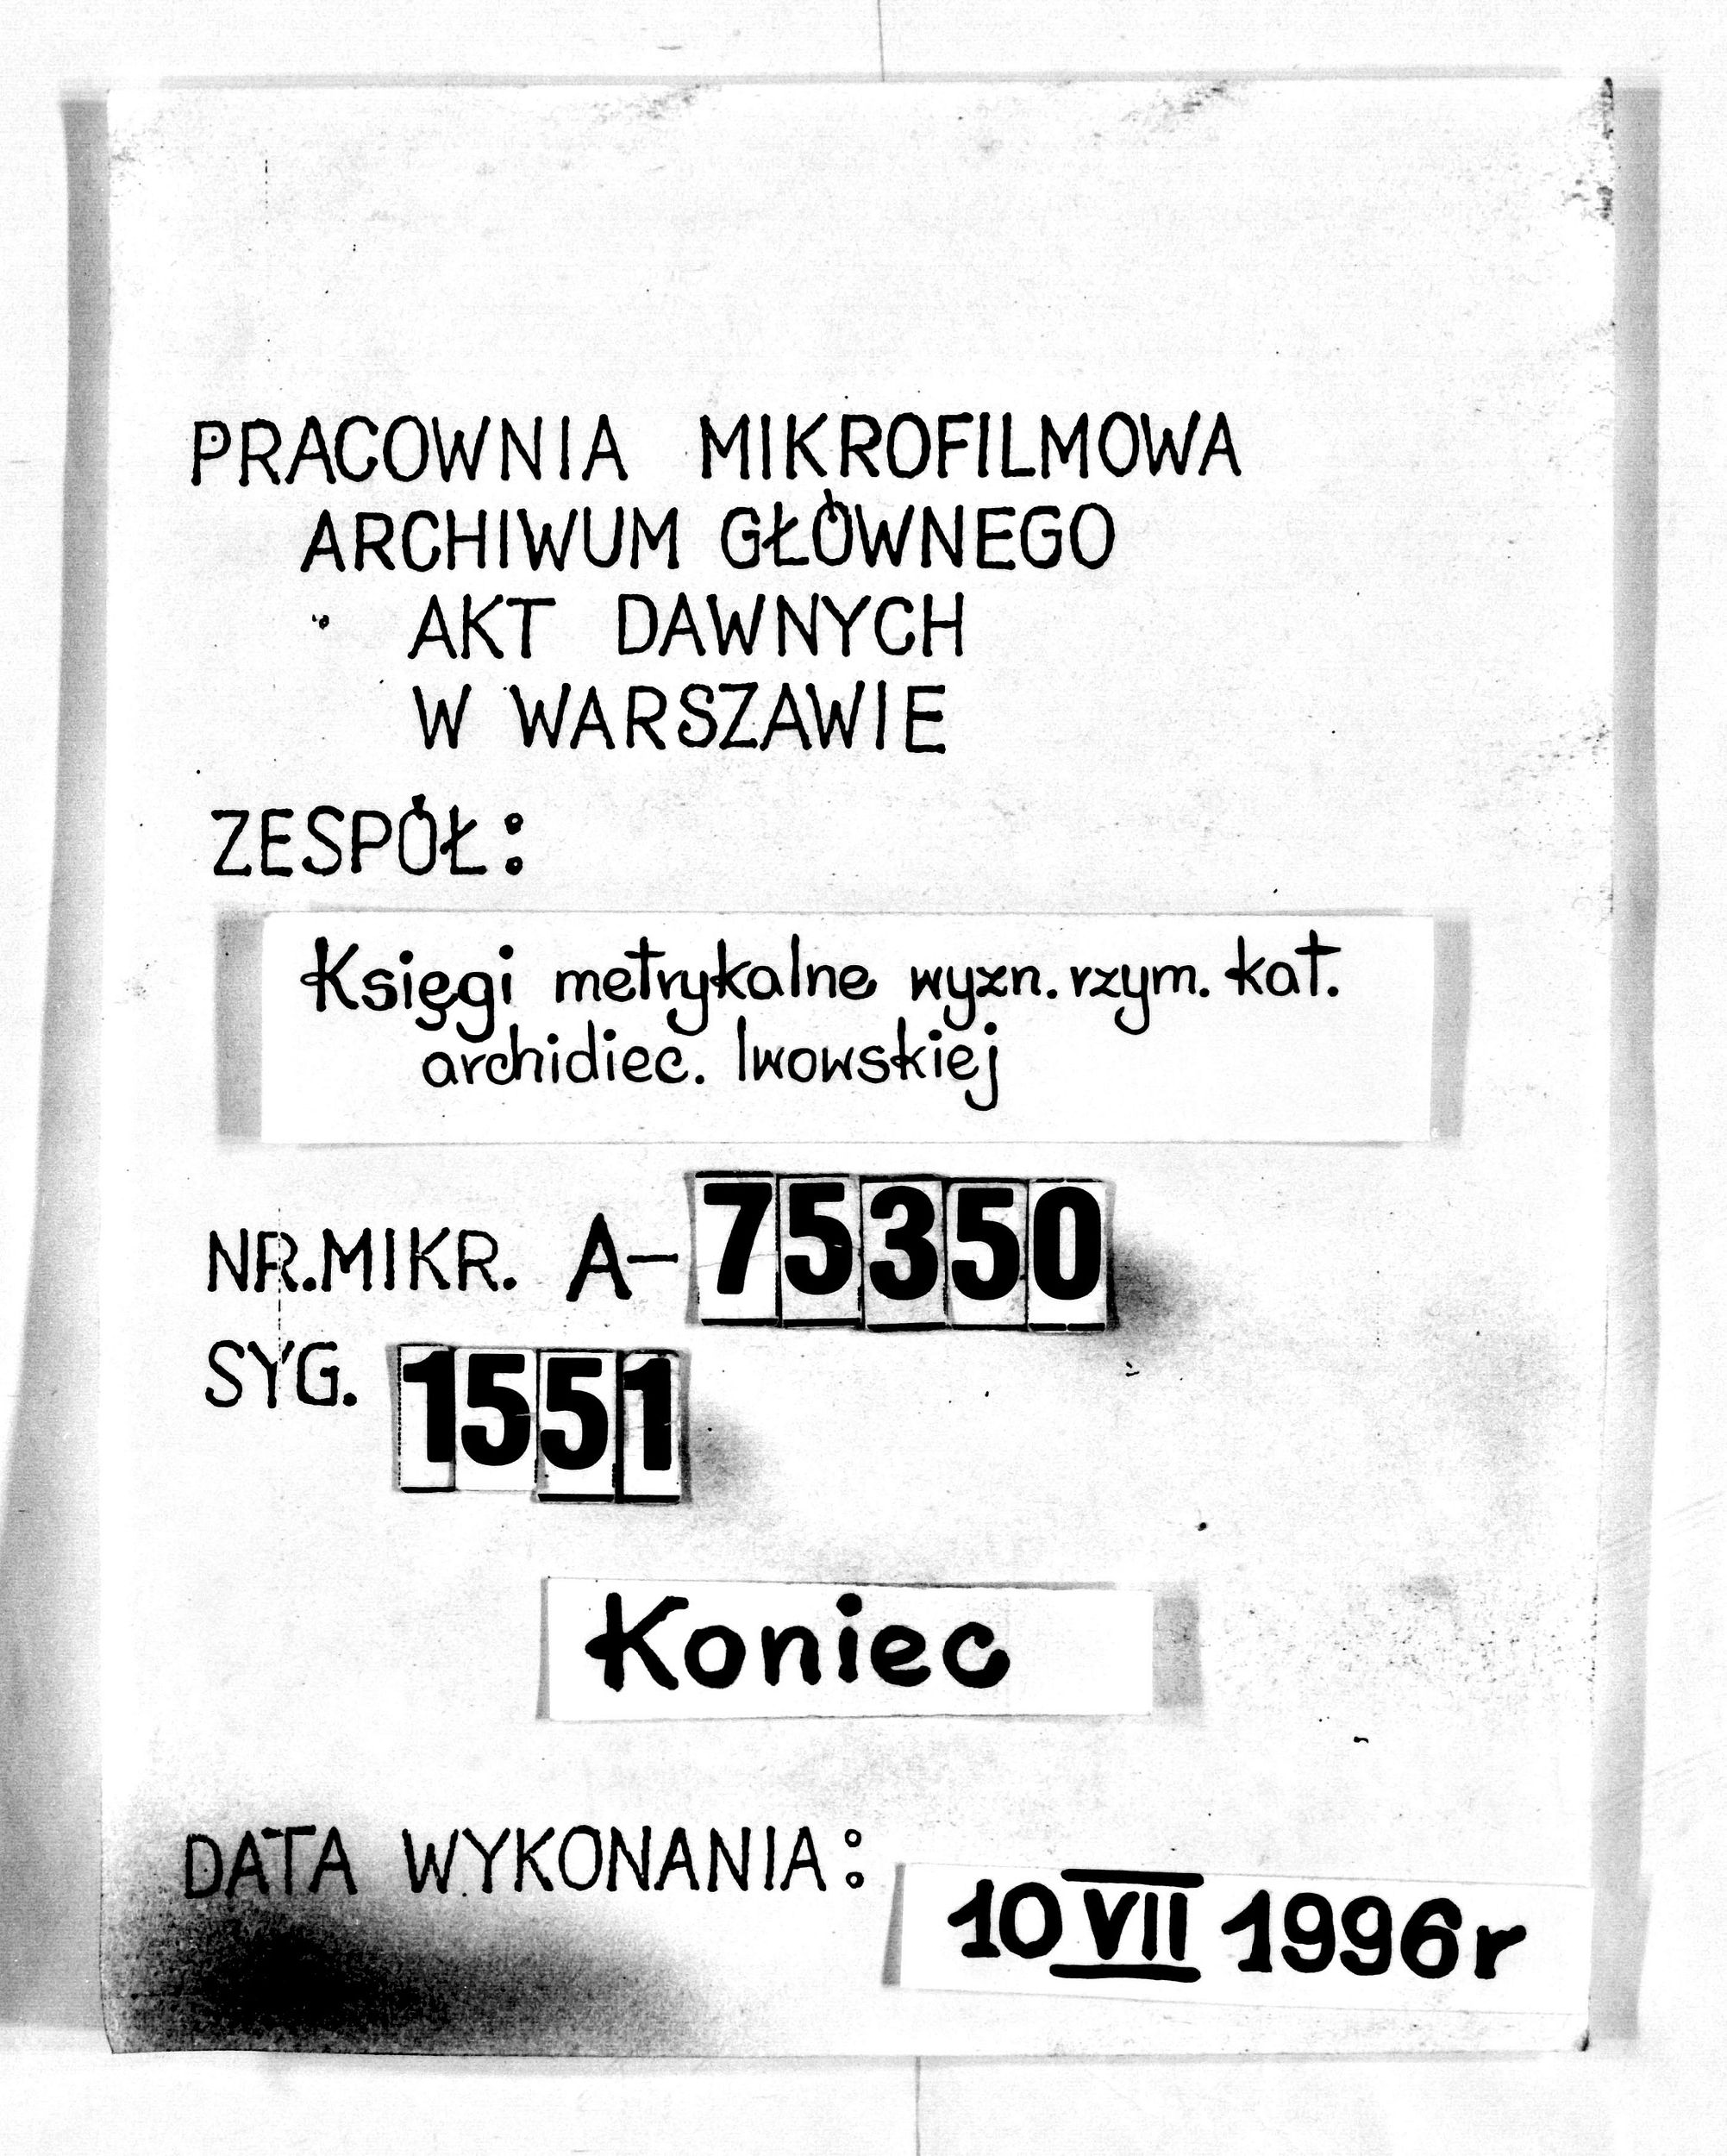 PRACOWNIA MIKROFILMOWA
ARCHIWUM GŁÓWNEGO
AKT DAWNYCH
W WARSZAWIE
ZESPÓŁ:
Księgi metrykalne wyzn. rzym. kat.
archidiec. lwowskiej
NR.MIKR. A-75350
SYG. 1551
Koniec
DATA WYKONANIA: 10 VII 1996r